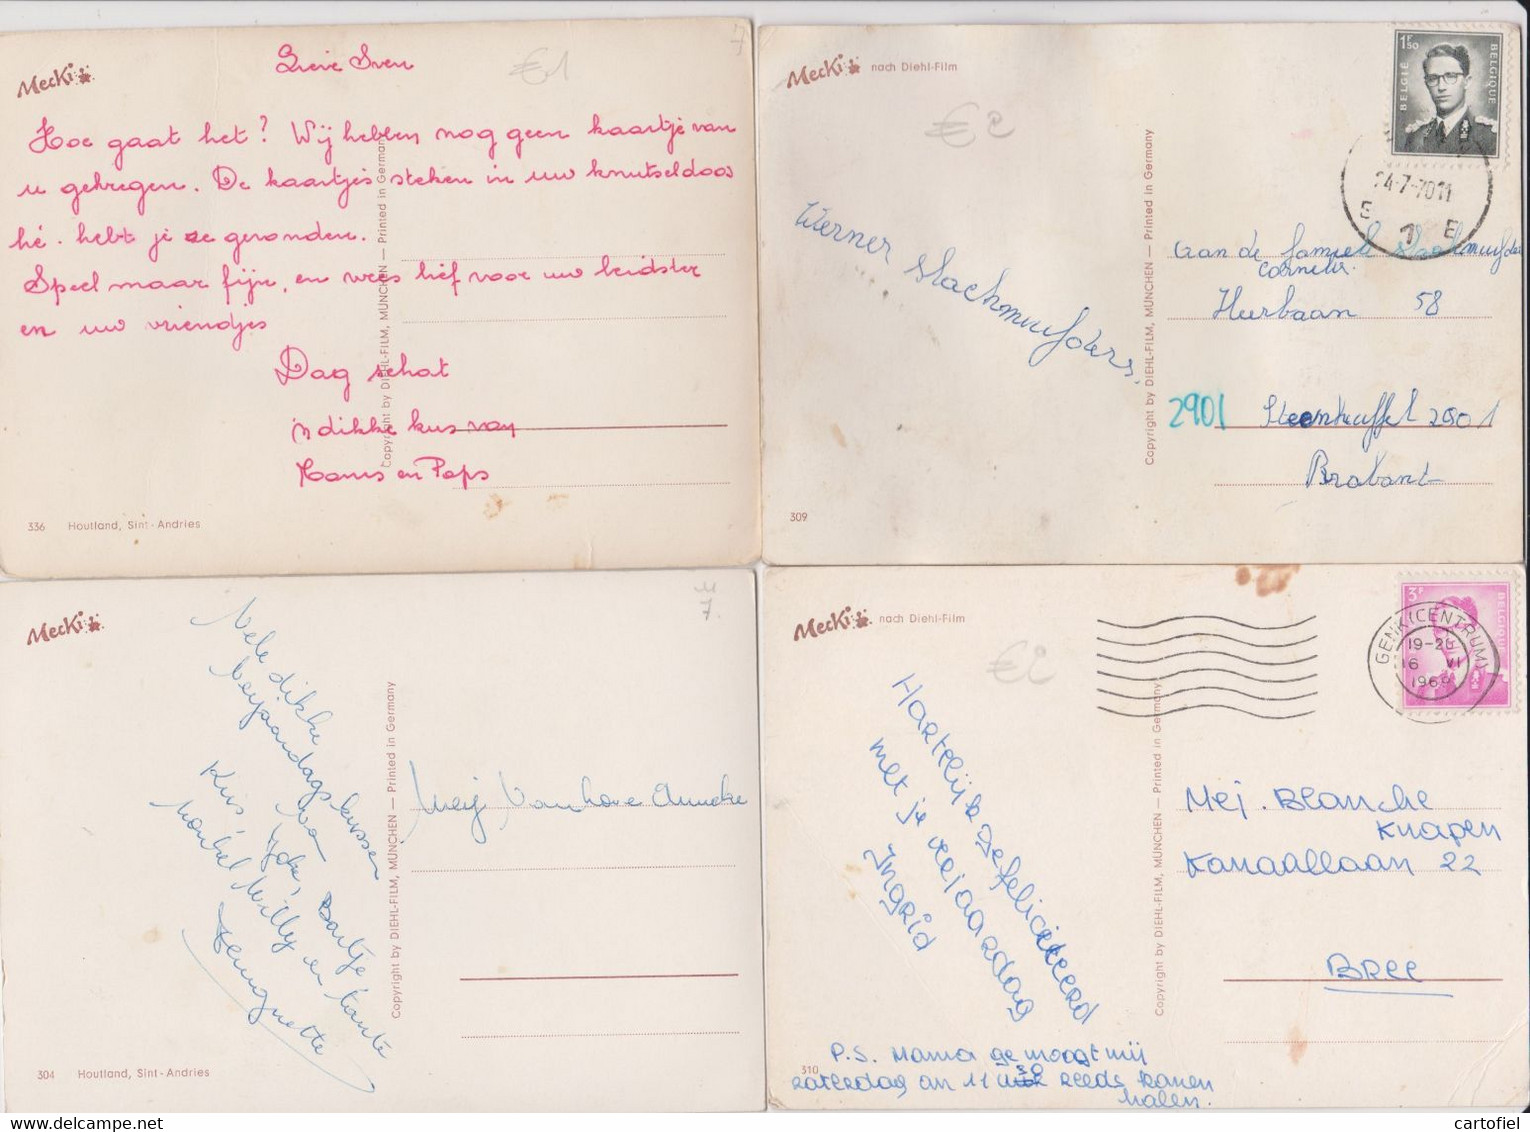 Mecki
Lieve Sven
€1
7
Hoe gaat het? Wij hebben nog geen kaartje van
u gekregen. De kaartjes steken in uw knutseldoos
hé. hebt je ze gevonden.
Speel maar fijn, en wees lief voor uw leidster
en uw vriendjes
Dag schat
'n dikke kus van
Mams en Paps
Copyright by DIEHL-FILM, MÜNCHEN — Printed in Germany
336 Houtland, Sint-Andries
Mecki nach Diehl-Film
€2
BELGIË 1F50 BELGIQUE
24-7-70 11
E 1 E
Werner Slachmuylders.
Copyright by DIEHL-FILM, MÜNCHEN — Printed in Germany
Aan de familie Slachmuylders
Cornelis.
Heerbaan 58
2901 Steenhuffel 2901
Brabant
309
Mecki
7.
Vele dikke
verjaardagskussen
van
Kris, Lydie, Bartje
nonkel Willy en tante
Huguette
Copyright by DIEHL-FILM, MÜNCHEN — Printed in Germany
Mej Vanhove Anneke
304 Houtland, Sint-Andries
Mecki nach Diehl-Film
€2
3F BELGIQUE
GENK (CENTRUM)
19-20
16 VI
1969
Hartelijk gefeliciteerd
met je verjaardag
Ingrid
Copyright by DIEHL-FILM, MÜNCHEN — Printed in Germany
Mej. Blanche
Knapen
Kanaallaan 22
Bree
P.S. Mama ge moogt mij
310
zaterdag om 11 30 reeds komen
halen.
cartofiel